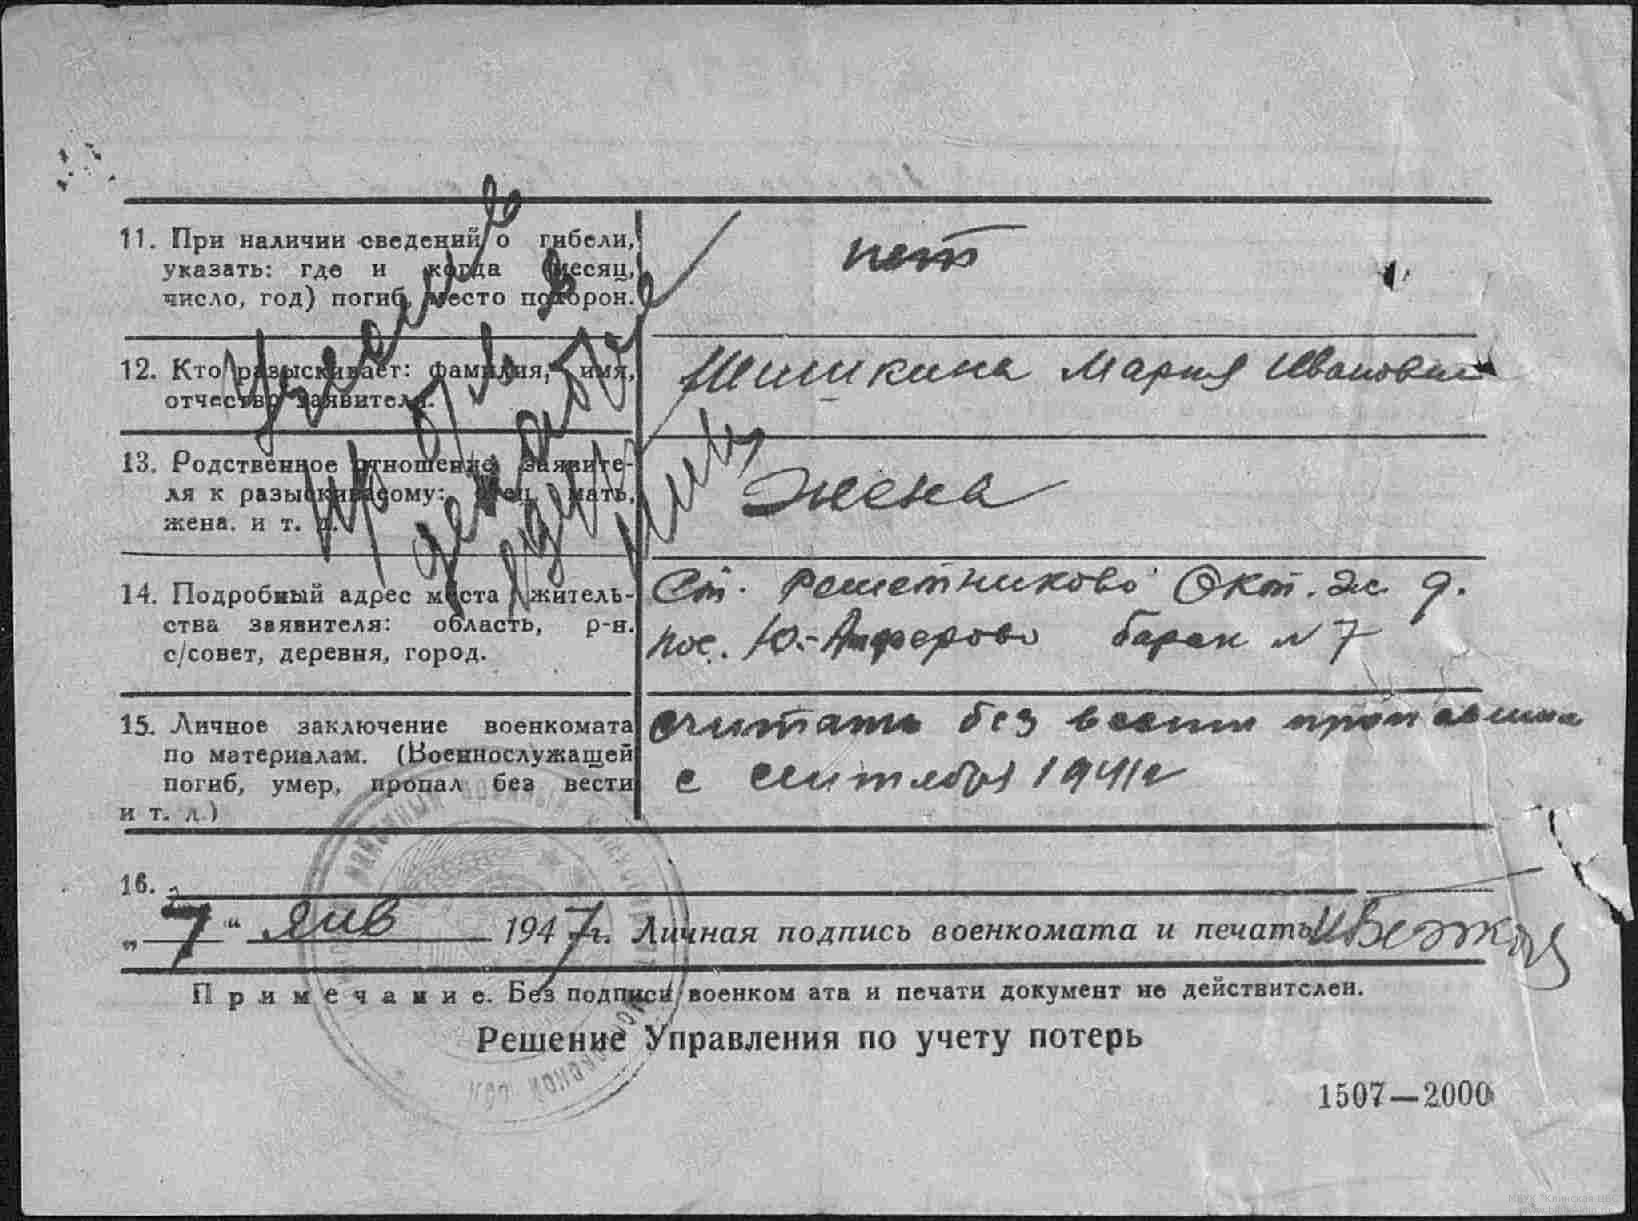 11. При наличии сведений о гибели,
указать: где и когда (месяц,
число, год) погиб, место похорон.
нет
12. Кто разыскивает: фамилия, имя,
отчество заявителя.
Шишкина Мария Ивановна
13. Родственное отношение заявите-
ля к разыскиваемому: отец, мать,
жена. и т. д.
Жена
14. Подробный адрес места житель-
ства заявителя: область, р-н.
с/совет, деревня, город.
Ст. Решетниково Окт. ж. д.
пос. Ю.-Алферово барак N 7
15. Личное заключение военкомата
по материалам. (Военнослужащей
погиб, умер, пропал без вести
и т. д.)
считать без вести пропавшим
с сентября 1941 г
16.
„7“ янв 1947 г. Личная подпись военкомата и печать
Примечание. Без подписи военком ата и печати документ не действителен.
Решение Управления по учету потерь
1507—2000
МБУК "Клинская ЦБС"